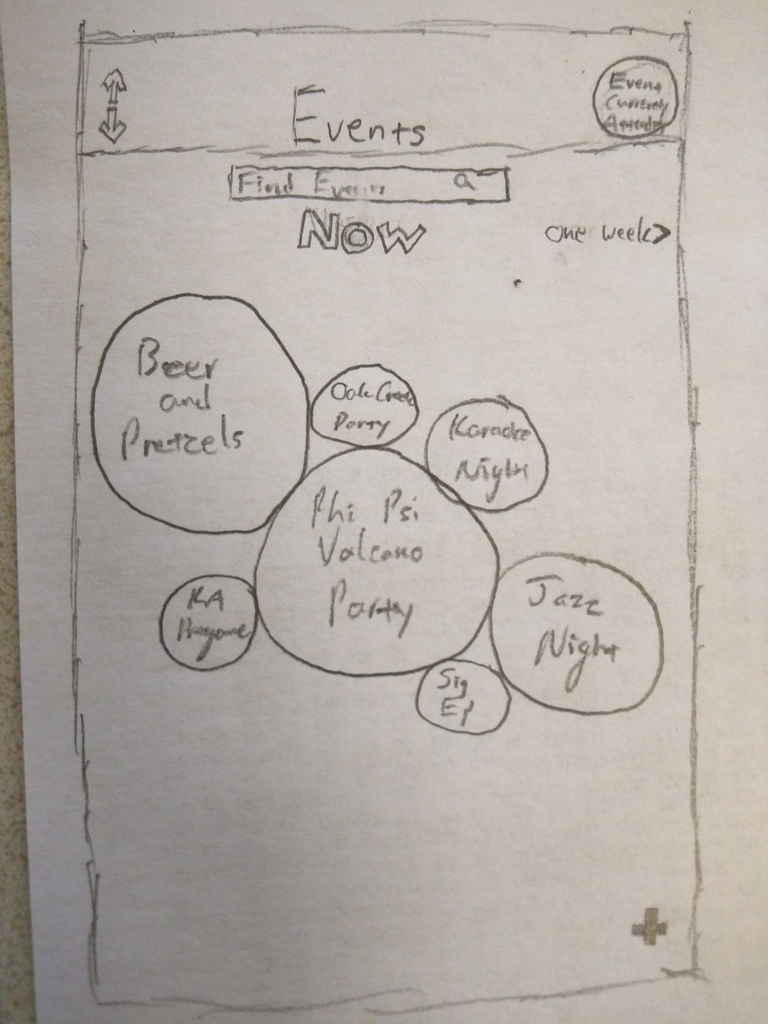 Events
Event
Currently
Attending
Find Events
Now
one week>
Beer
and
Pretzels
Oak Creek
Party
Karaoke
Night
Phi Psi
Volcano
Party
KA
Jazz
Night
Sig
Ep